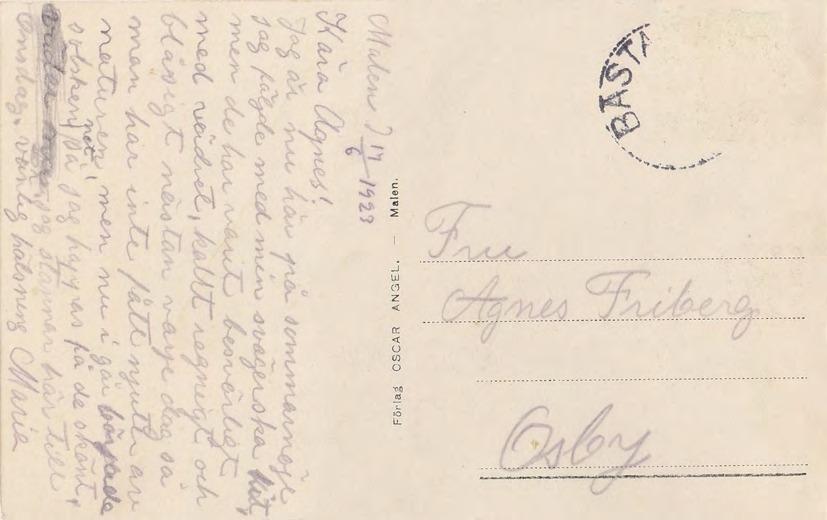 Malen d 17/6 1923
Kära Agnes!
Jag är nu här på sommarnöje
jag följde med min svägerska hit,
men de har varit besvärligt
med vädret, kallt regnigt och
blåsigt nästan varje dag så
man har inte fått njuta av
naturen, men nu i går började
solsken, så jag hoppas få de skönt,
jag stannar här till
Onsdag. vänlig hälsning Maria
Förlag OSCAR ANGEL. — Malen.
BÅSTA
Fru
Agnes Friberg
Osby